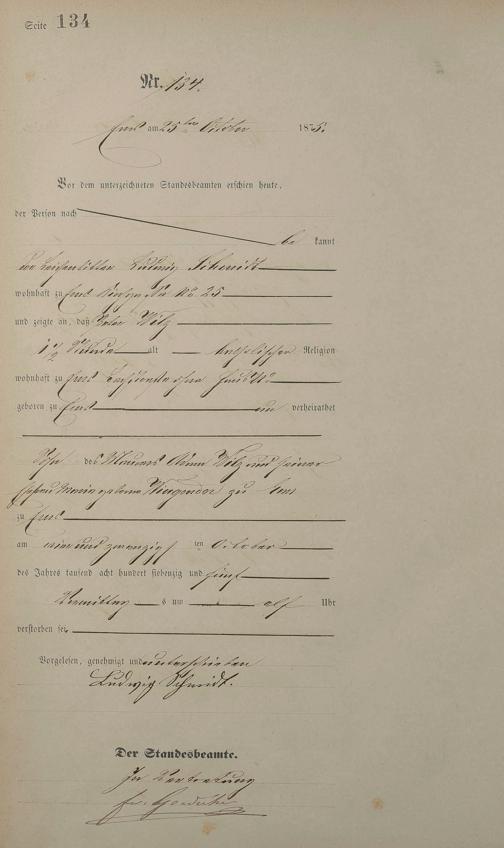 Seite 134
Nr. 134.
Ems am 25ten October 1875.
Vor dem unterzeichneten Standesbeamten erschien heute,
der Person nach
be kannt
der Leichenbitter Ludwig Schmidt
wohnhaft zu Ems No 25
und zeigte an, daß Peter Wilz
1 1/2 alt katholischer Religion
wohnhaft zu Ems
geboren zu Ems un verheirathet
Sohn des Maurers Wilz und seiner
Ehefrau Maria geborene zu Ems
zu Ems
am vier und zwanzigsten October
des Jahres tausend acht hundert siebenzig und fünf
Vormittags um elf Uhr
verstorben sei.
Vorgelesen, genehmigt und unterschrieben
Ludwig Schmidt.
Der Standesbeamte.
In Vertretung